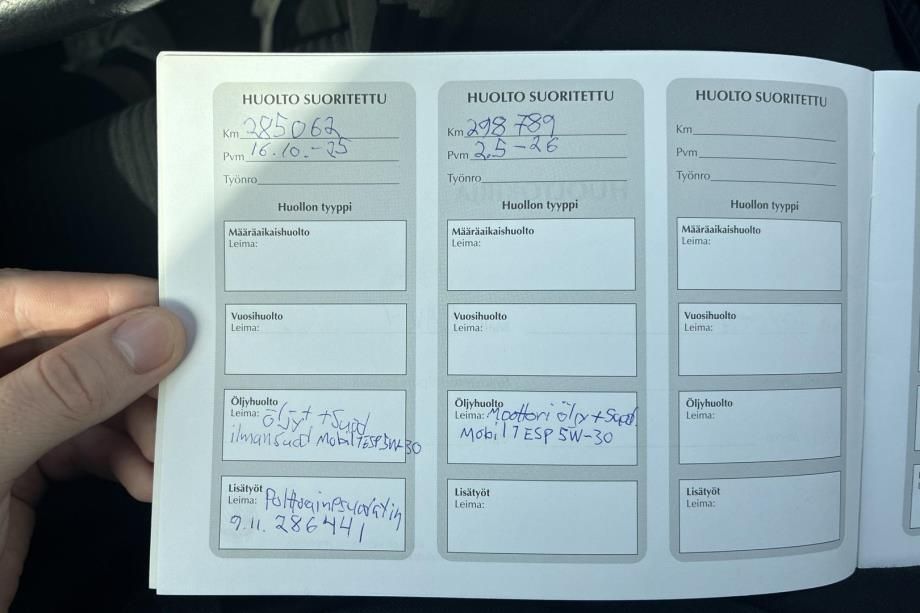 HUOLTO SUORITETTU
Km 285062
Pvm 16.10.-25
Työnro
Huollon tyyppi
Määräaikaishuolto
Leima:
Vuosihuolto
Leima:
Öljyhuolto
Leima: öljyt + Suod
ilmansuod Mobil 1 ESP 5W-30
Lisätyöt
Leima: Polttoainesuodatin
9.11. 286441
HUOLTO SUORITETTU
Km 298 789
Pvm 2.5-26
Työnro
Huollon tyyppi
Määräaikaishuolto
Leima:
Vuosihuolto
Leima:
Öljyhuolto
Leima: Moottori öljy + Suod.
Mobil 1 ESP 5W-30
Lisätyöt
Leima:
HUOLTO SUORITETTU
Km
Pvm
Työnro
Huollon tyyppi
Määräaikaishuolto
Leima:
Vuosihuolto
Leima:
Öljyhuolto
Leima:
Lisätyöt
Leima: